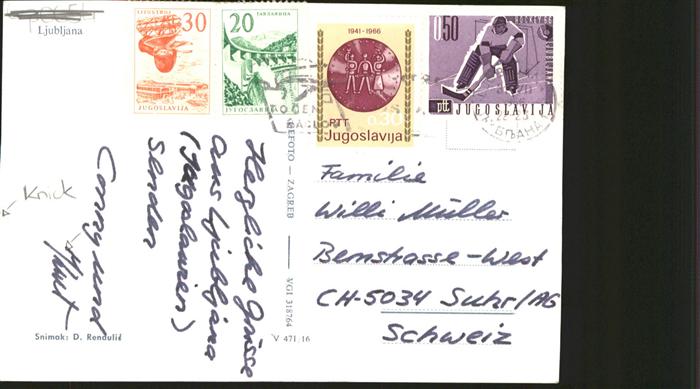 Ljubljana
30
JUGOSLAVIJA
20
JUGOSLAVIJA
1941-1966
0.30
PTT
Jugoslavija
0.50
ptt
JUGOSLAVIJA
Herzliche Grüsse
aus Ljubljana
(Jugoslawien)
senden
Conny und
Knick
Snimak: D. Rendulić
ZAGREB
VGI 318764
V 471/16
Familie
Willi Müller
Bernstrasse-West
CH-5034 Suhr/AG
Schweiz